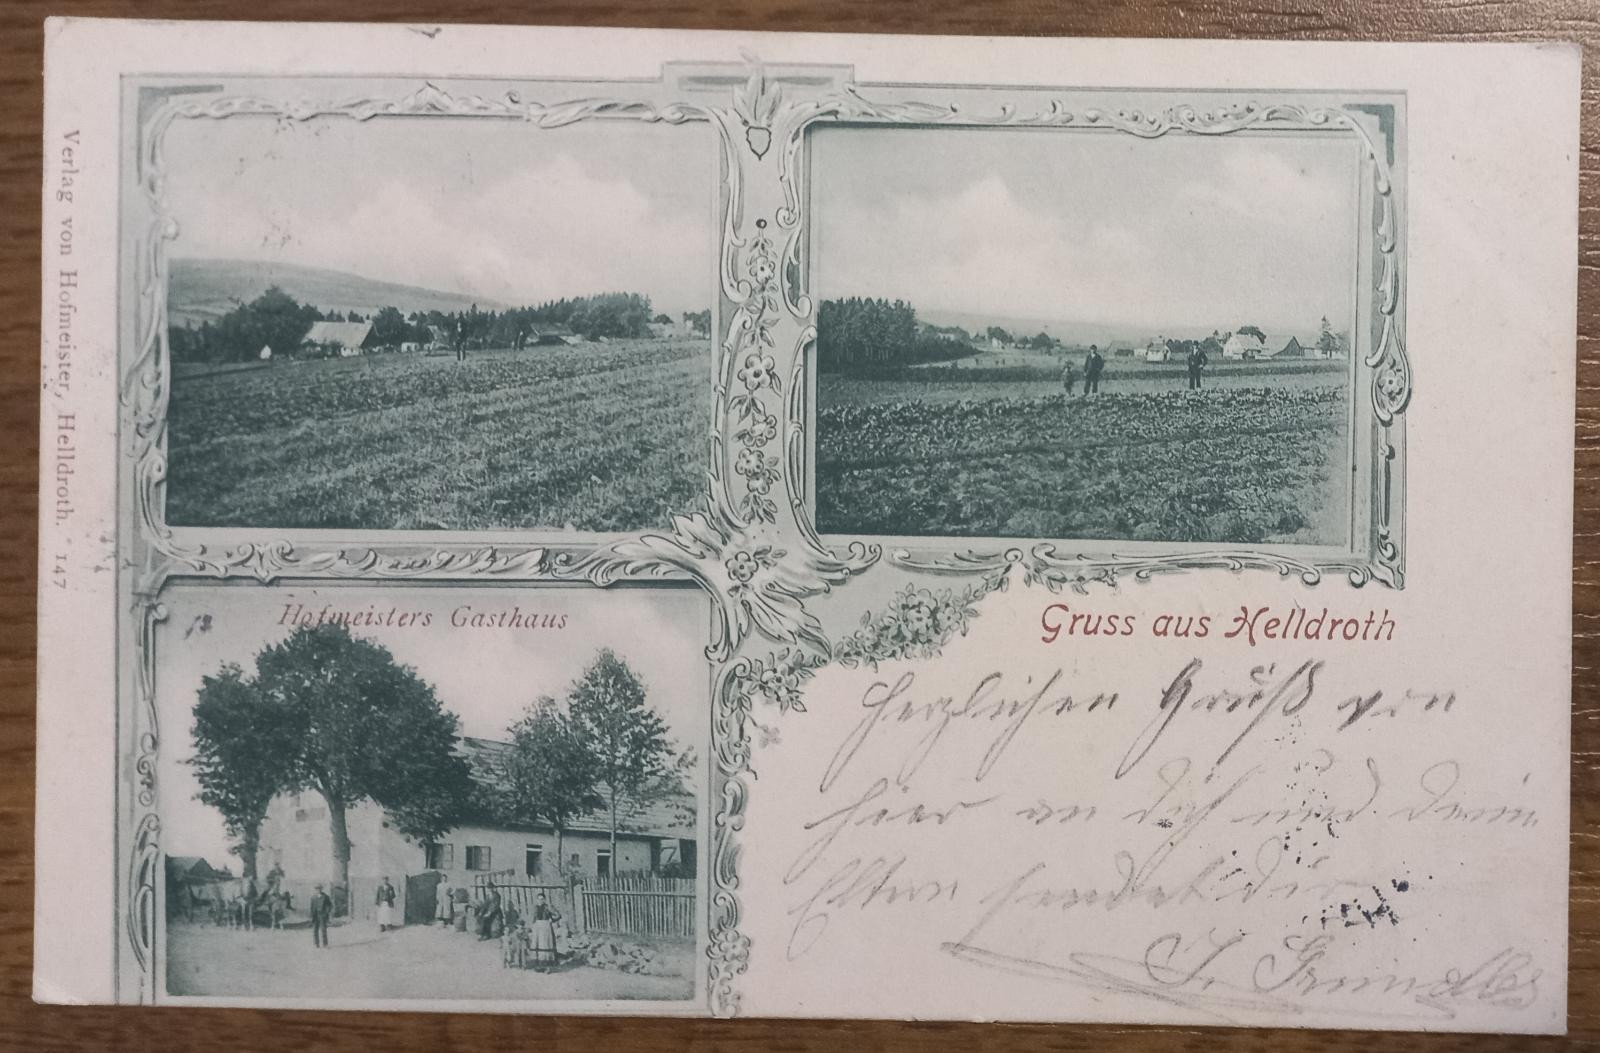 Verlag von Hofmeister, Helldroth. 147
Hofmeisters Gasthaus
Gruss aus Helldroth
Herzlichen Gruß von
hier an dich und dein
Eltern sendet dir